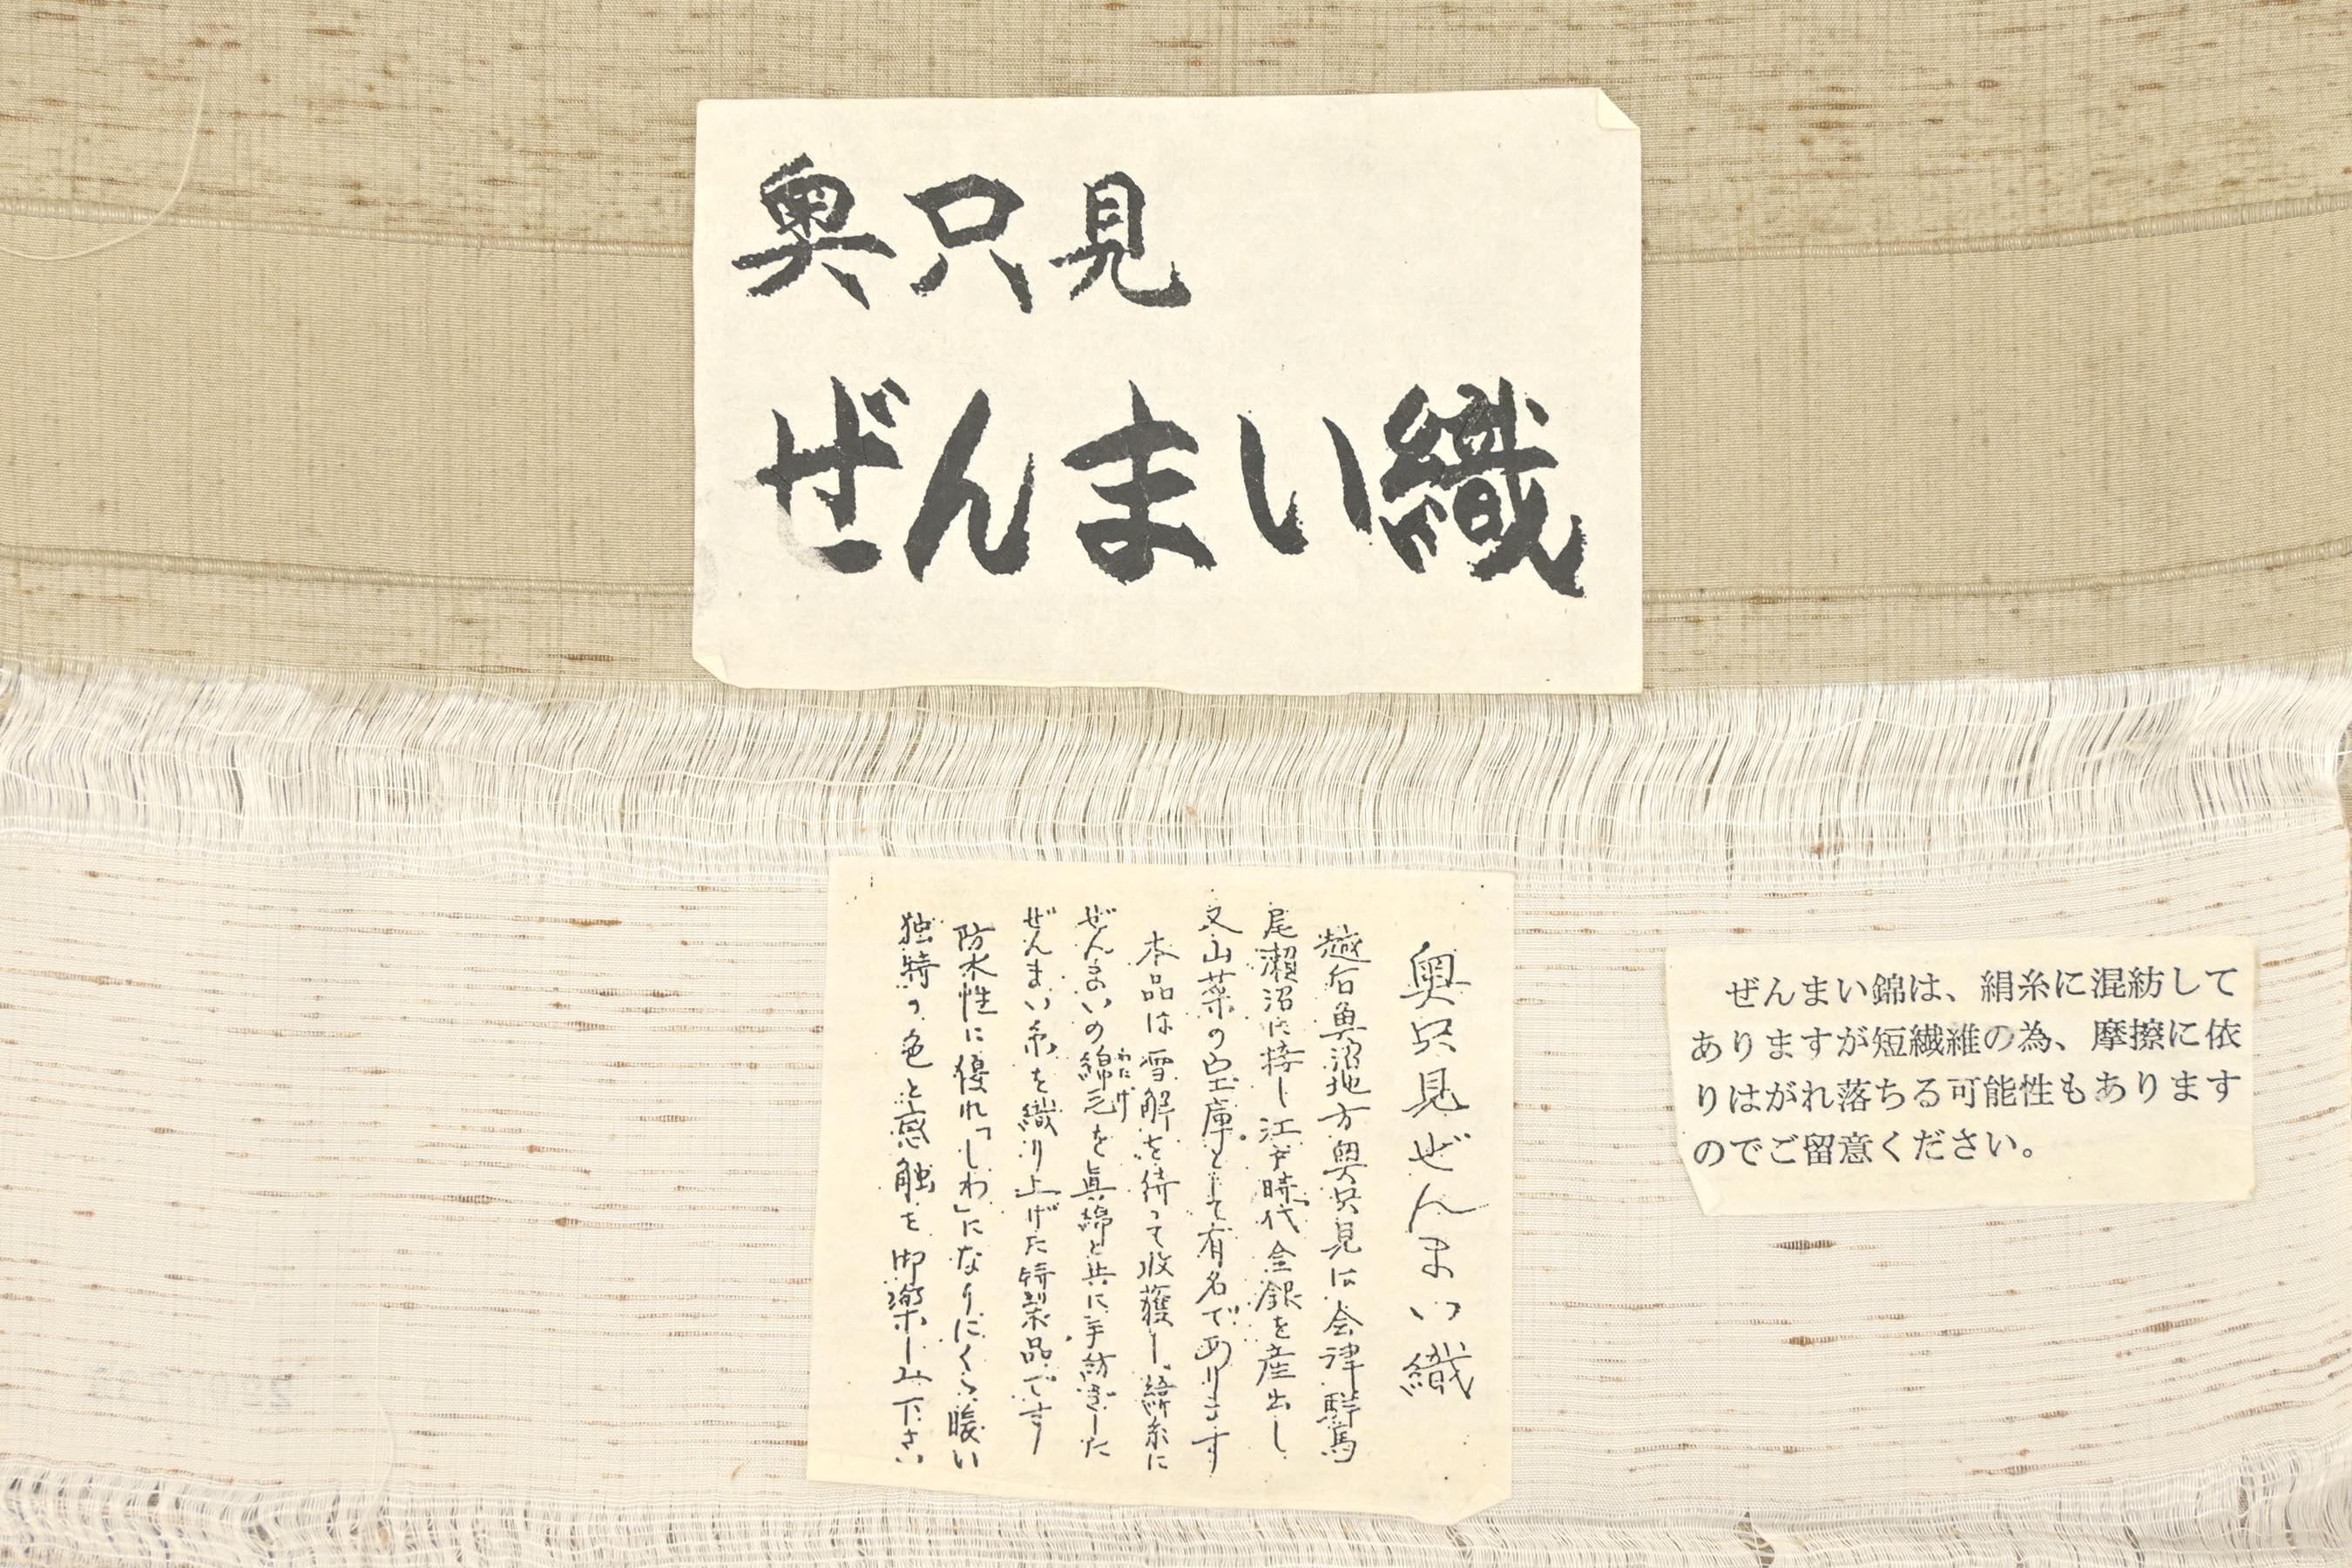 奥只見
ぜんまい織
奥只見ぜんまい織
越后魚沼地方奥只見は会津駒
尾瀬沼に接し江戸時代金銀を産出し
又山菜の宝庫として有名であります
本品は雪解を待って収獲し、綿糸に
ぜんまいの綿毛を真綿と共に手紡ぎした
わたげ
ぜんまい糸を織り上げた特製品です
防水性に優れ「しわ」になりにくく暖い
独特の色と感触を御楽しみ下さい
ぜんまい錦は、絹糸に混紡して
ありますが短繊維の為、摩擦に依
りはがれ落ちる可能性もあります
のでご留意ください。